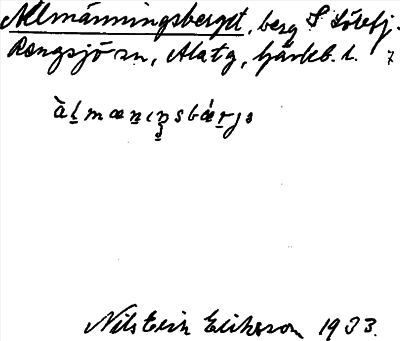 Allmänningsberget, berg S Lövsj.
Rengsjö sn, Ala tg, Gävleb. l. 7
àlmænıŋsbærjə
Nils Erik Eriksson 1933.